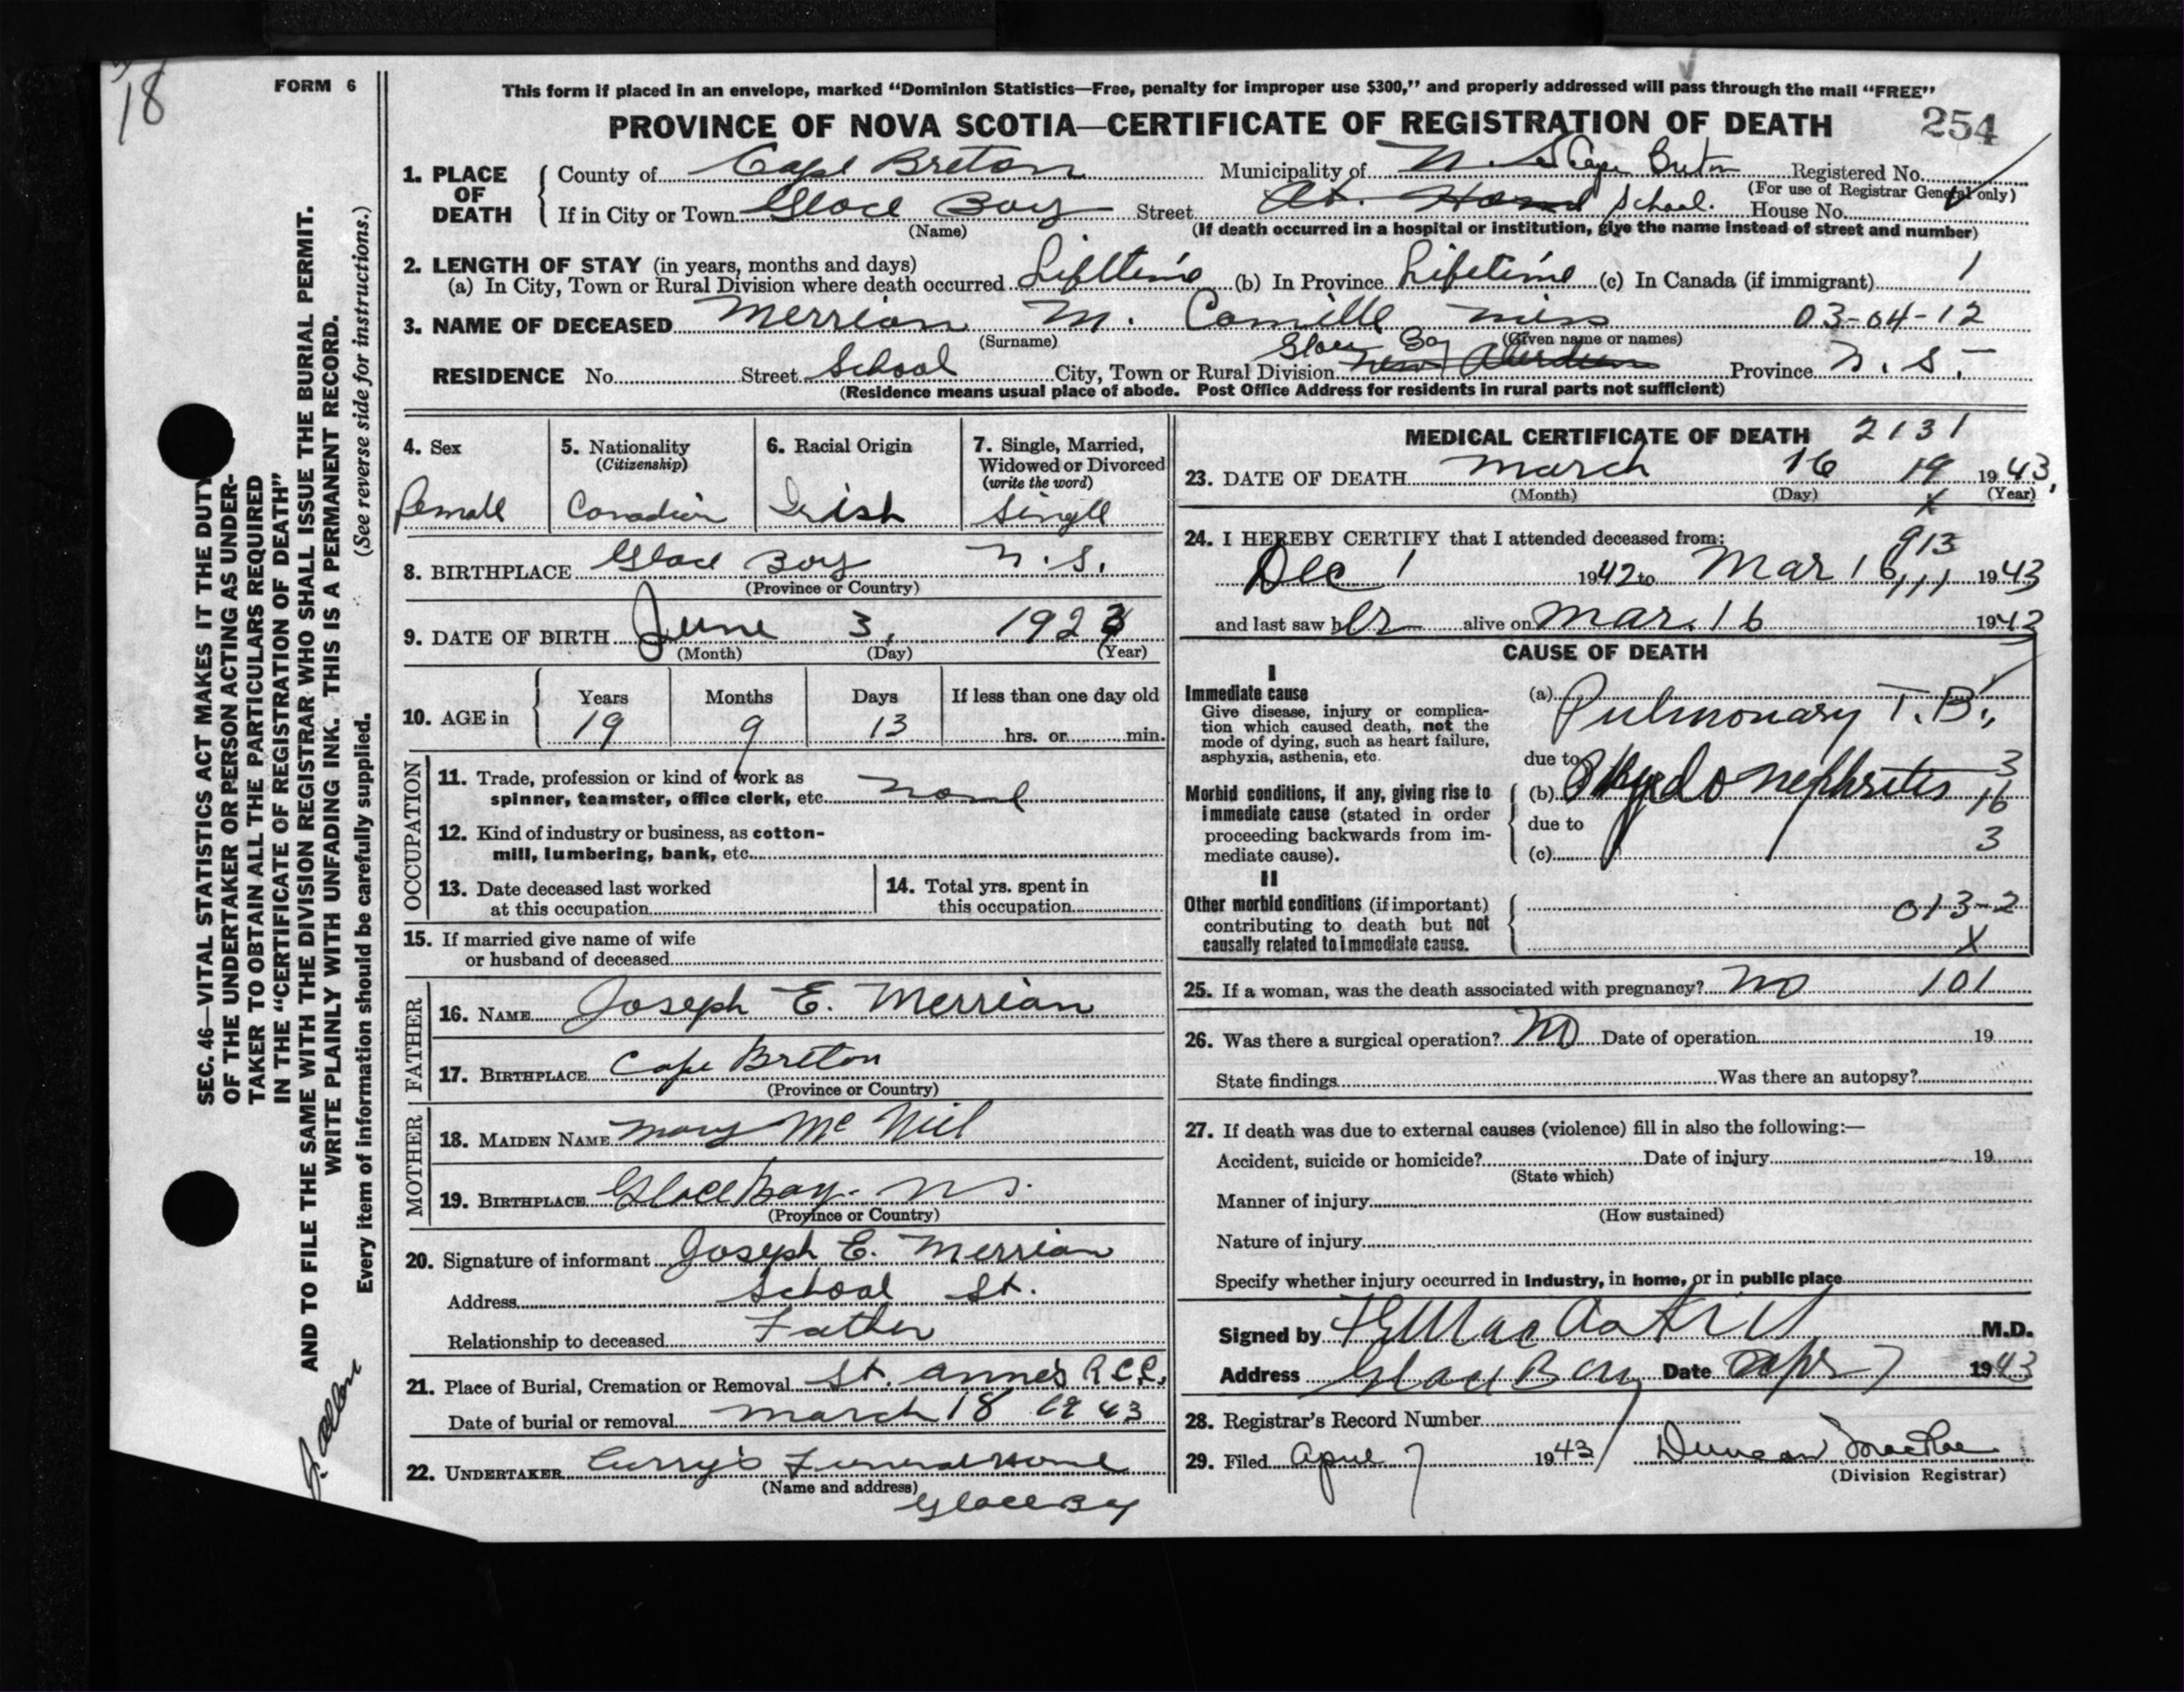 18
FORM 6
This form if placed in an envelope, marked “Dominion Statistics—Free, penalty for improper use $300,” and properly addressed will pass through the mail “FREE”
PROVINCE OF NOVA SCOTIA—CERTIFICATE OF REGISTRATION OF DEATH 254
1. PLACE OF DEATH
County of Cape Breton Municipality of N. S. Cape Breton Registered No.
(For use of Registrar General only)
If in City or Town Glace Bay Street At Home School. House No.
(Name)
(If death occurred in a hospital or institution, give the name instead of street and number)
2. LENGTH OF STAY (in years, months and days)
(a) In City, Town or Rural Division where death occurred Lifetime (b) In Province Lifetime (c) In Canada (if immigrant) 1
3. NAME OF DECEASED Merrian M. Camille Miss 03-04-12
(Surname) (Given name or names)
Glace Bay
RESIDENCE No. Street School City, Town or Rural Division New Aberdeen Province N. S.
(Residence means usual place of abode. Post Office Address for residents in rural parts not sufficient)
4. Sex
Female
5. Nationality
(Citizenship)
Canadian
6. Racial Origin
Irish
7. Single, Married,
Widowed or Divorced
(write the word)
Single
8. BIRTHPLACE Glace Bay N.S.
(Province or Country)
9. DATE OF BIRTH June 3, 1923
(Month) (Day) (Year)
10. AGE in
Years Months Days If less than one day old
19 9 13 hrs. or min.
OCCUPATION
11. Trade, profession or kind of work as
spinner, teamster, office clerk, etc. None
12. Kind of industry or business, as cotton-
mill, lumbering, bank, etc.
13. Date deceased last worked
at this occupation
14. Total yrs. spent in
this occupation
15. If married give name of wife
or husband of deceased
FATHER
16. NAME Joseph E. Merrian
17. BIRTHPLACE Cape Breton
(Province or Country)
MOTHER
18. MAIDEN NAME Mary McNiel
19. BIRTHPLACE Glace Bay. N S.
(Province or Country)
20. Signature of informant Joseph E. Merrian
Address School St.
Relationship to deceased Father
21. Place of Burial, Cremation or Removal St. Anne's R.C.C.
Date of burial or removal March 18 1943
22. UNDERTAKER Curry's Funeral Home
(Name and address)
Glace Bay
MEDICAL CERTIFICATE OF DEATH 2131
23. DATE OF DEATH March 16 19 1943,
(Month) (Day) (Year)
X
24. I HEREBY CERTIFY that I attended deceased from:
913
Dec 1 1942 to Mar 16, 111 1943
and last saw her alive on Mar. 16 1943
CAUSE OF DEATH
I
Immediate cause
Give disease, injury or complica-
tion which caused death, not the
mode of dying, such as heart failure,
asphyxia, asthenia, etc.
(a) Pulmonary T.B.,
due to
Morbid conditions, if any, giving rise to
immediate cause (stated in order
proceeding backwards from im-
mediate cause).
(b) nephritis 3
16
due to
(c) 3
II
Other morbid conditions (if important)
contributing to death but not
causally related to immediate cause.
013-2
X
25. If a woman, was the death associated with pregnancy? No 101
26. Was there a surgical operation? No Date of operation 19
State findings Was there an autopsy?
27. If death was due to external causes (violence) fill in also the following:—
Accident, suicide or homicide? Date of injury 19
(State which)
Manner of injury
(How sustained)
Nature of injury
Specify whether injury occurred in Industry, in home, or in public place
Signed by M.D.
Address Glace Bay Date Apr 7 1943
28. Registrar's Record Number
29. Filed April 7 1943 Duncan MacRae
(Division Registrar)
SEC. 46—VITAL STATISTICS ACT MAKES IT THE DUTY
OF THE UNDERTAKER OR PERSON ACTING AS UNDER-
TAKER TO OBTAIN ALL THE PARTICULARS REQUIRED
IN THE “CERTIFICATE OF REGISTRATION OF DEATH”
AND TO FILE THE SAME WITH THE DIVISION REGISTRAR WHO SHALL ISSUE THE BURIAL PERMIT.
WRITE PLAINLY WITH UNFADING INK. THIS IS A PERMANENT RECORD.
Every item of information should be carefully supplied. (See reverse side for instructions.)